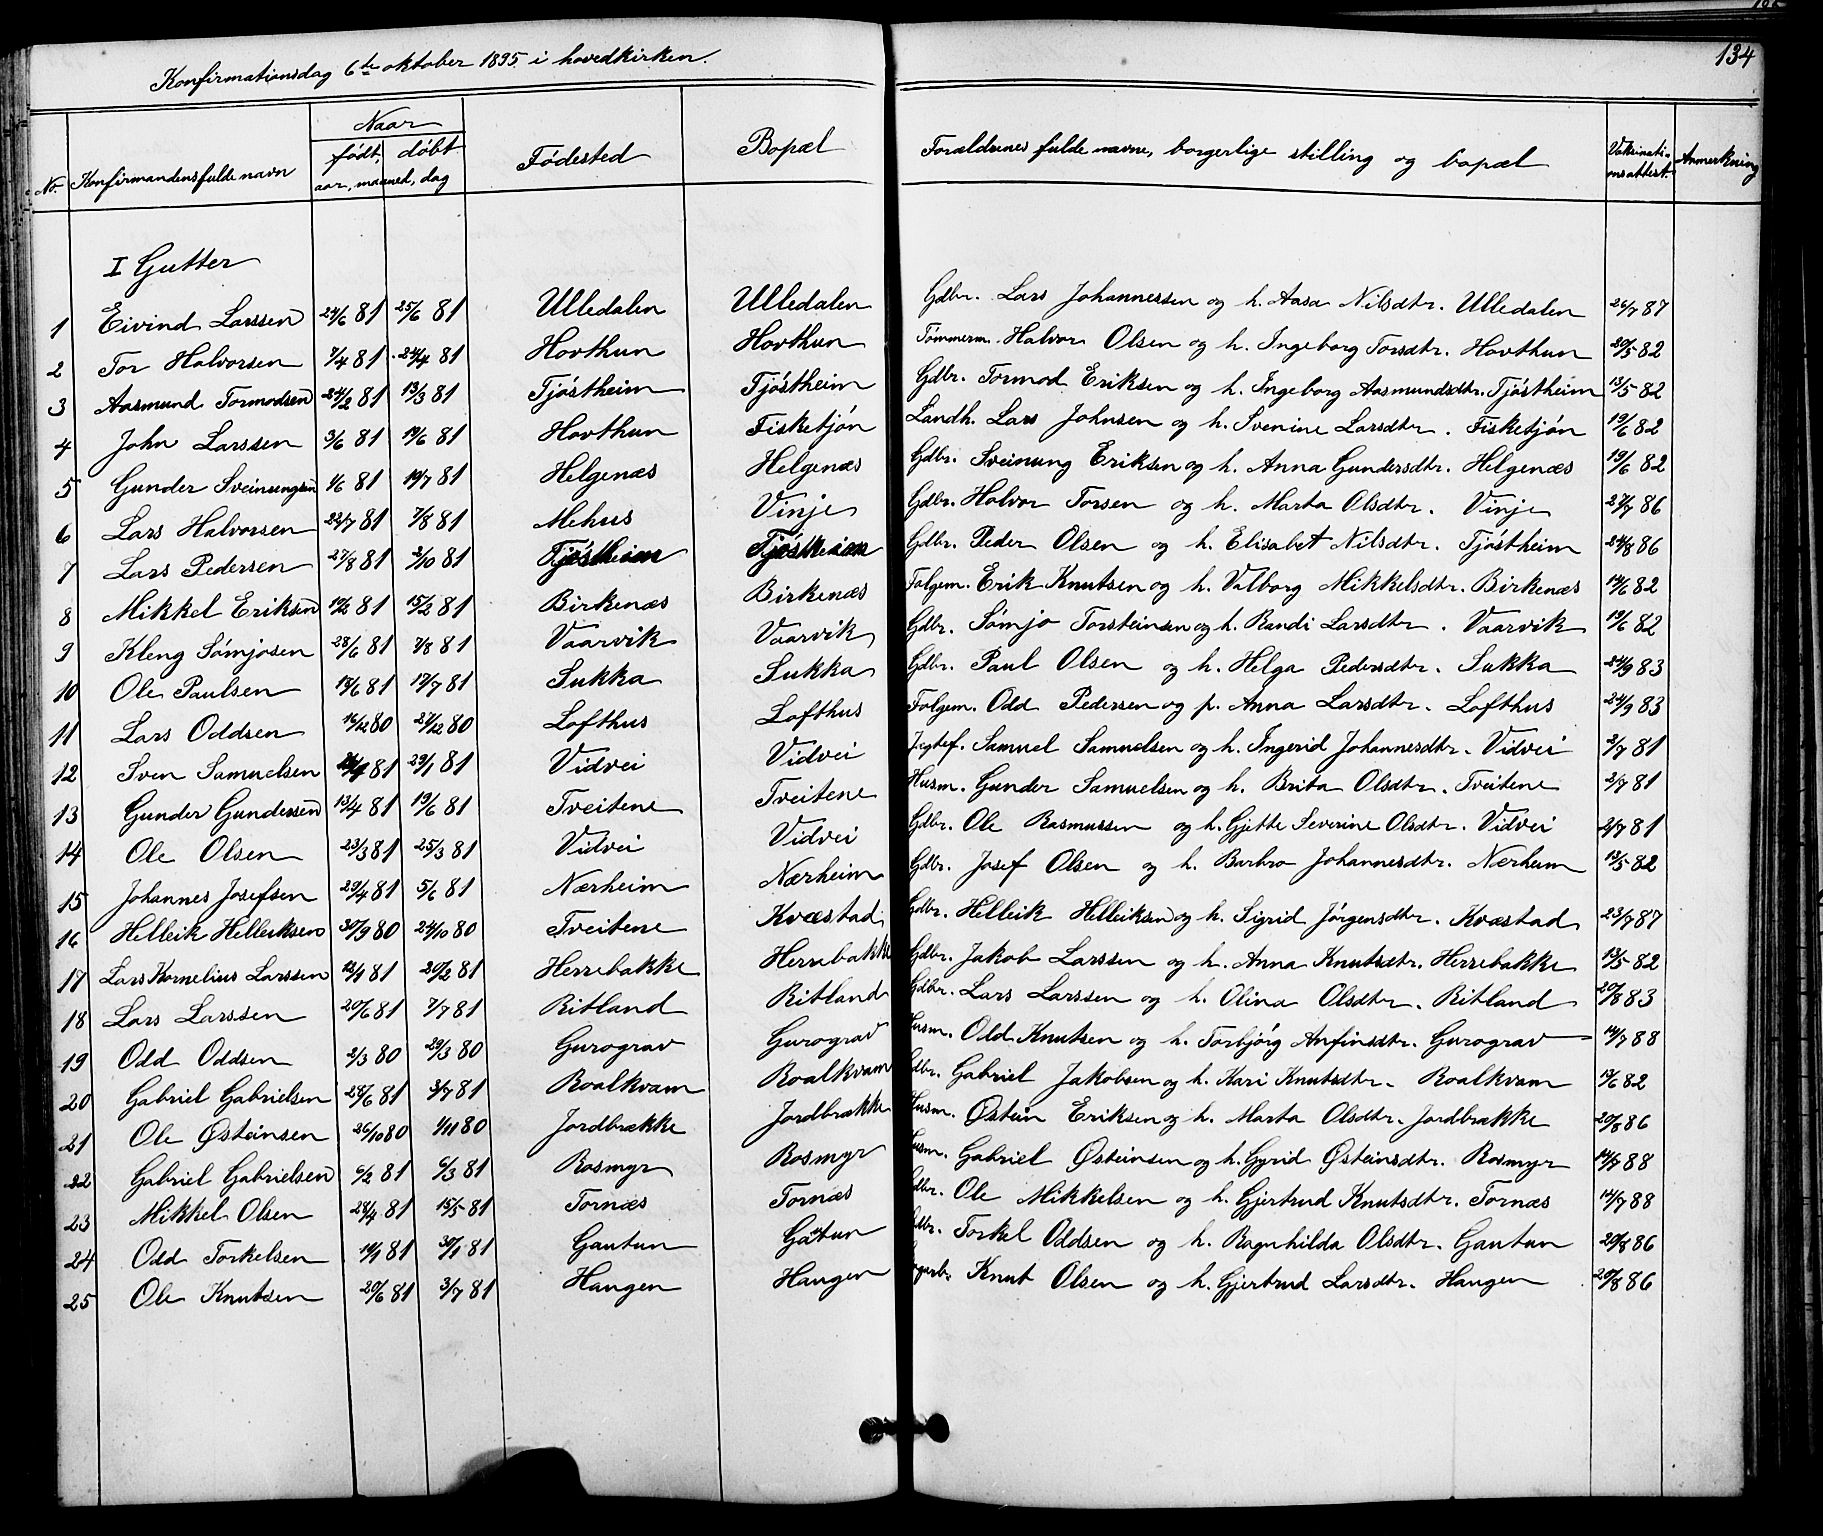 134
Konfirmationsdag 6te oktober 1895 i hovedkirken.
No. Konfirmandens fulde navn Naar født, døbt aar, maaned, dag Fødested Bopæl Forældrenes fulde navne, borgerlige stilling og bopæl Vaksinationsattest. Anmerkning
I Gutter
1 Eivind Larssen 24/6 81 25/6 81 Ulledalen Ulledalen Gdbr. Lars Johannessen og h. Aasa Nilsdtr. Ulledalen 26/7 87
2 Tor Halvorsen 7/4 81 24/4 81 Hovthun Hovthun Tømmerm. Halvor Olsen og h. Ingeborg Torsdtr. Hovthun 20/5 82
3 Aasmund Tormodsen 24/2 81 13/3 81 Tjøstheim Tjøstheim Gdbr. Tormod Eriksen og h. Ingeborg Aasmundsdtr. Tjøstheim 13/5 82
4 John Larssen 3/6 81 19/6 81 Hovthun Fisketjøn Landh. Lars Johnsen og h. Svenine Larsdtr. Fisketjøn 19/6 82
5 Gunder Sveinungsen 1/6 81 19/7 81 Helgenæs Helgenæs Gdbr. Sveinung Eriksen og h. Anna Gundersdtr. Helgenæs 19/6 82
6 Lars Halvorsen 22/7 81 7/8 81 Mehus Vinje Gdbr. Halvor Torsen og h. Marta Olsdtr. Vinje 27/7 86
7 Lars Pedersen 27/8 81 2/10 81 Tjøstheim Tjøstheim Gdbr. Peder Olsen og h. Elisabet Nilsdtr. Tjøstheim 24/8 86
8 Mikkel Eriksen 12/2 81 15/2 81 Birkenæs Birkenæs Folgem. Erik Knutsen og h. Valborg Mikkelsdtr. Birkenæs 14/6 82
9 Kleng Sømjosen 28/6 81 7/8 81 Vaarvik Vaarvik Gdbr. Sømjo Torsteinsen og h. Randi Larsdtr. Vaarvik 19/6 82
10 Ole Paulsen 18/6 81 17/7 81 Sukka Sukka Gdbr. Paul Olsen og h. Helga Pedersdtr. Sukka 24/9 83
11 Lars Oddsen 16/12 80 27/12 80 Lofthus Lofthus Folgem. Odd Pedersen og p. Anna Larsdtr. Lofthus 24/9 83
12 Sven Samuelsen 81 29/1 81 Vidvei Vidvei Jegtef. Samuel Samuelsen og h. Ingerid Johannesdtr. Vidvei 2/7 81
13 Gunder Gundersen 13/4 81 19/6 81 Tveitene Tveitene Husm. Gunder Samuelsen og h. Brita Olsdtr. Tveitene 2/7 81
14 Ole Olsen 23/3 81 25/3 81 Vidvei Vidvei Gdbr. Ole Rasmussen og h. Gjette Severine Olsdtr. Vidvei 2/7 81
15 Johannes Josefsen 29/4 81 5/6 81 Nærheim Nærheim Gdbr. Josef Olsen og h. Barbro Johannesdtr. Nærheim 13/5 82
16 Helleik Helleiksen 30/9 80 24/10 80 Tveitene Kvæstad Gdbr. Helleik Helleiksen og h. Sigrid Jørgensdtr. Kvæstad 23/7 87
17 Lars Kornelius Larssen 12/1 81 20/2 81 Herrebakke Herrebakke Gdbr. Jakob Larssen og h. Anna Knutsdtr. Herrebakke 13/5 82
18 Lars Larssen 20/6 81 7/7 81 Ritland Ritland Gdbr. Lars Larssen og h. Olina Olsdtr. Ritland 20/8 83
19 Odd Oddsen 2/3 80 29/3 80 Gurograv Gurograv Husm. Odd Knutsen og h. Torbjørg Anfinsdtr. Gurograv 14/7 88
20 Gabriel Gabrielsen 28/6 81 3/7 81 Roalkvam Roalkvam Gdbr. Gabriel Jakobsen og h. Kari Knutsdtr. Roalkvam 82
21 Ole Østeinsen 26/10 80 1/11 80 Jordbrække Jordbrække Husm. Østein Eriksen og h. Marta Olsdtr. Jordbrække 20/8 86
22 Gabriel Gabrielsen 6/2 81 6/3 81 Rosmyr Rosmyr Husm. Gabriel Østeinsen og h. Gyrid Østeinsdtr. Rosmyr 14/7 88
23 Mikkel Olsen 28/4 81 15/5 81 Tornæs Tornæs Gdbr. Ole Mikkelsen og h. Gjertrud Knutsdtr. Tornæs 14/7 88
24 Odd Torkelsen 19/1 81 30/1 81 Gautun Gautun Gdbr. Torkel Oddsen og h. Ragnhilda Olsdtr. Gautun 20/8 86
25 Ole Knutsen 20/6 81 3/7 81 Haugen Haugen Knut Olsen og h. Gjertrud Larsdtr. Haugen 20/8 86